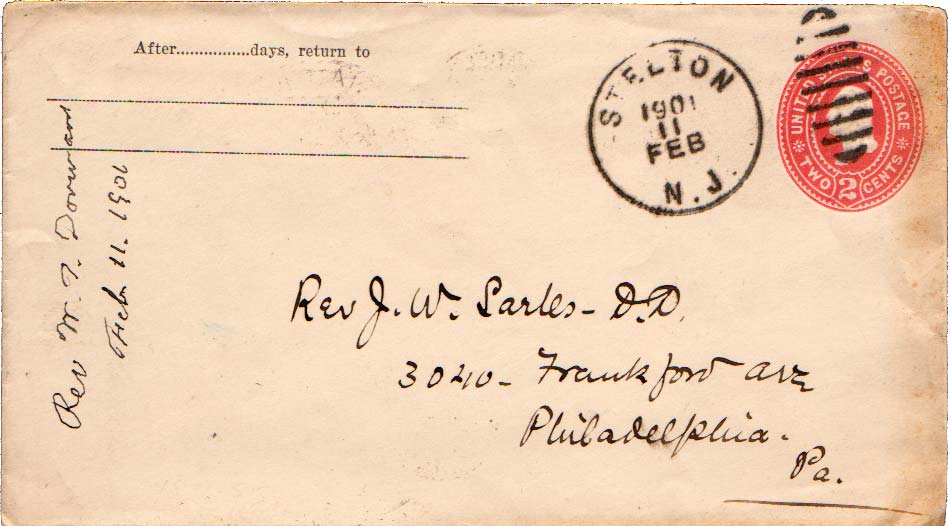 After...............days, return to
STELTON
1901
11
FEB
N.J.
UNITED S POSTAGE
TWO 2 CENTS
Rev J. W. Sarles - D.D.
3040 - Frankford ave
Philadelphia.
Pa.
Rev W. T.
Feb 11. 1901